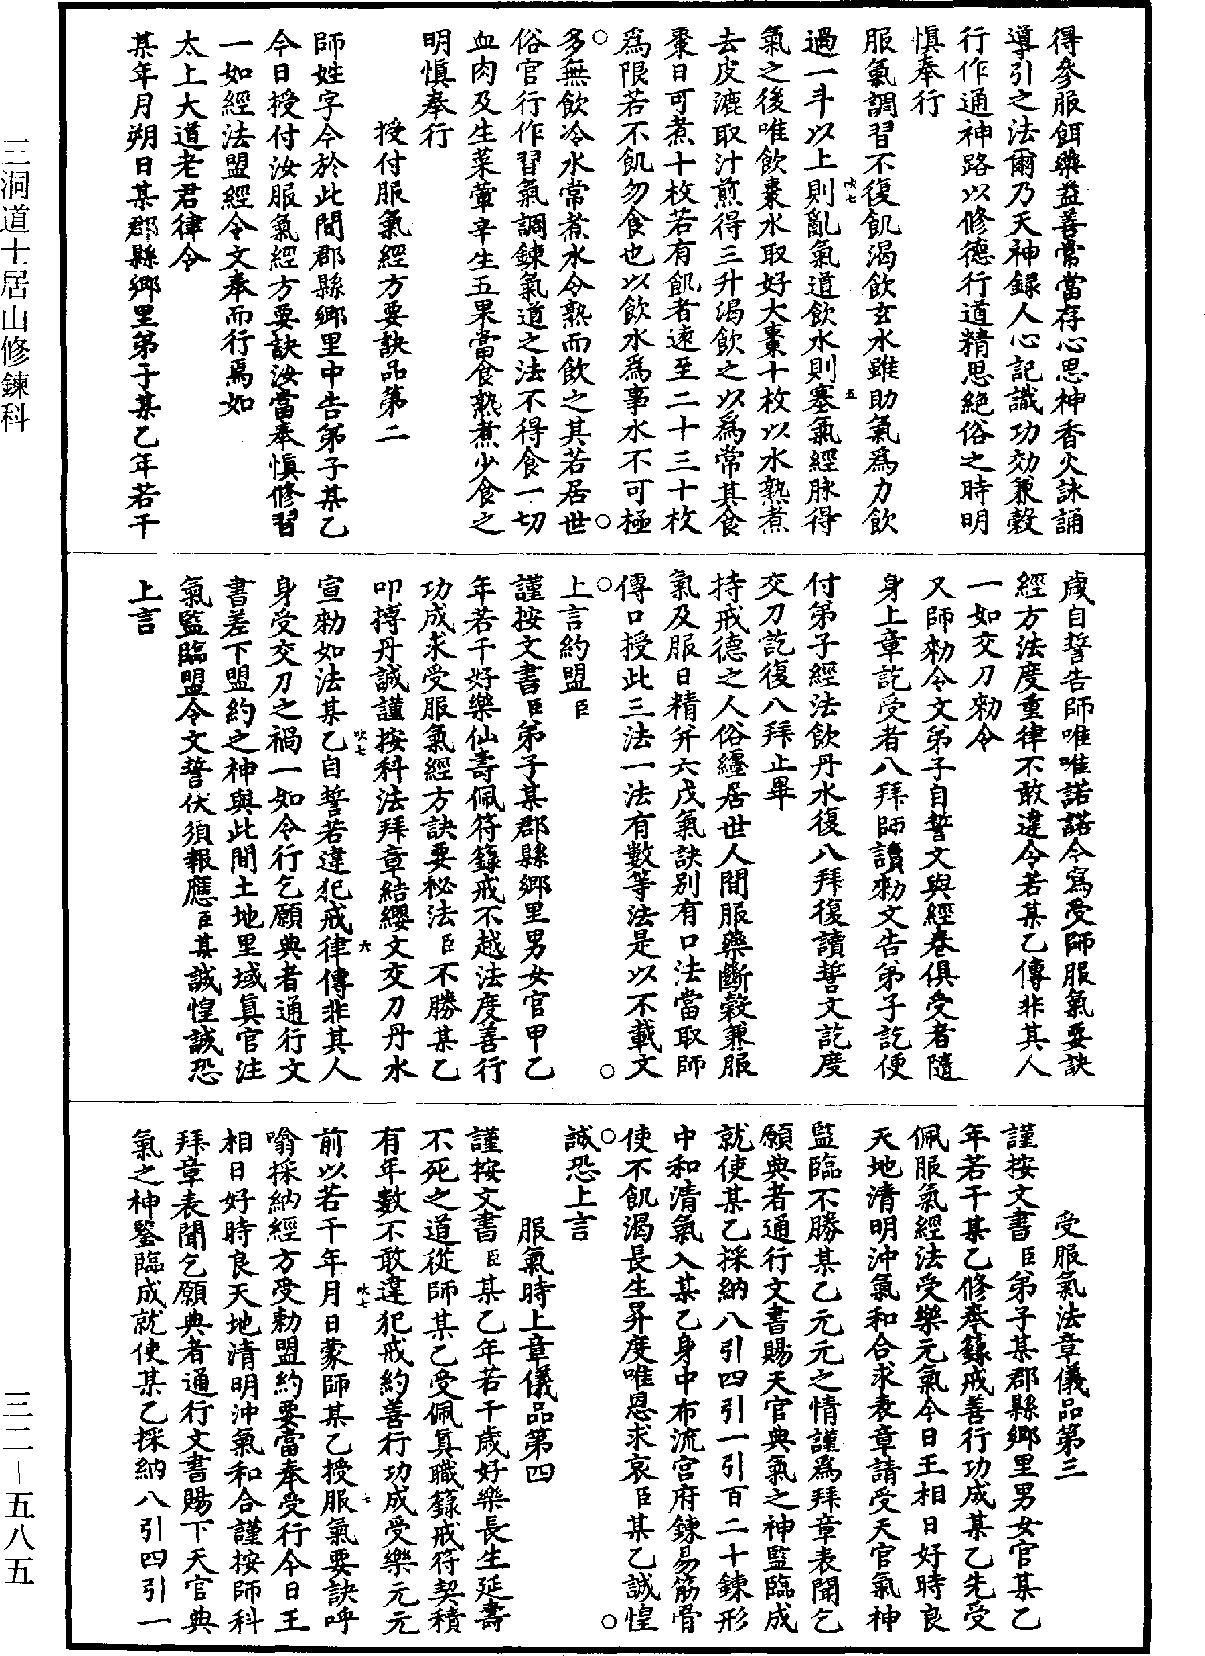 得參服餌藥益善當當存心思神香火詠誦
導引之法爾乃天神錄人心記識功効兼穀
行作通神路以修德行道精思絕俗之時明
慎奉行
服氣調習不復飢渴飲玄水雖助氣為力飲
過一斗以上則亂氣道飲水則塞氣經脉得
氣之後唯飲棗水取好大棗十枚以水熟煮
去皮漉取汁煎得三升渴飲之以為常其食
棗日可煮十枚若有飢者速至二十三十枚
為限若不飢勿食也以飲水為事水不可極
多無飲冷水常煮水令熟而飲之其若居世
俗官行作習氣調鍊氣道之法不得食一切
血肉及生菜葷辛生五果當食熟煮少食之
明慎奉行
授付服氣經方要訣品第二
師姓字今於此間郡縣鄉里中告弟子某乙
今日授付汝服氣經方要訣汝當奉慎修習
一如經法盟經令文奉而行焉如
太上大道老君律令
某年月朔日某郡縣鄉里弟子某乙年若干
歲自誓告師唯唯諾諾今寫受師服氣要訣
經方法度重律不敢違令若某乙傳非其人
一如交刀勑令
又師勑令文弟子自誓文與經卷俱受者隨
身上章訖受者八拜師讀勑文告弟子訖便
付弟子經法飲丹水復八拜復讀誓文訖度
交刀訖復八拜止畢
持戒德之人俗纏居世人間服藥斷穀兼服
氣及服日精并六戊氣訣別有口法當取師
傳口授此三法一法有數等法是以不載文
上言約盟臣
謹按文書臣弟子某郡縣鄉里男女官甲乙
年若干好樂仙壽佩符籙戒不越法度善行
功成求受服氣經方訣要秘法臣不勝某乙
叩搏丹誠謹按科法拜章結纓文交刀丹水
宣勑如法某乙自誓若違犯戒律傳非其人
身受交刀之禍一如令行乞願典者通行文
書差下盟約之神與此間土地里域真官注
氣監臨盟令文誓伏須報應臣某誠惶誠恐
上言
受服氣法章儀品第三
謹按文書臣弟子某郡縣鄉里男女官某乙
年若干某乙修奉籙戒善行功成某乙先受
佩服氣經法受樂元氣今日王相日好時良
天地清明沖氣和合求表章請受天官氣神
監臨不勝某乙元元之情謹為拜章表聞乞
願典者通行文書賜天官典氣之神監臨成
就使某乙採納八引四引一引百二十鍊形
中和清氣入某乙身中布流宮府鍊易筋骨
使不飢渴長生昇度唯恩求哀臣某乙誠惶
誠恐上言
服氣時上章儀品第四
謹按文書臣某乙年若干歲好樂長生延壽
不死之道從師某乙受佩真職籙戒符契積
有年數不敢違犯戒約善行功成受樂元元
前以若干年月日蒙師某乙授服氣要訣呼
噏採納經方受勑盟約要當奉受行今日王
相日好時良天地清明沖氣和合謹按師科
拜章表聞乞願典者通行文書賜下天官典
氣之神鑒臨成就使某乙採納八引四引一
三洞道士居山修鍊科
三二－五八五